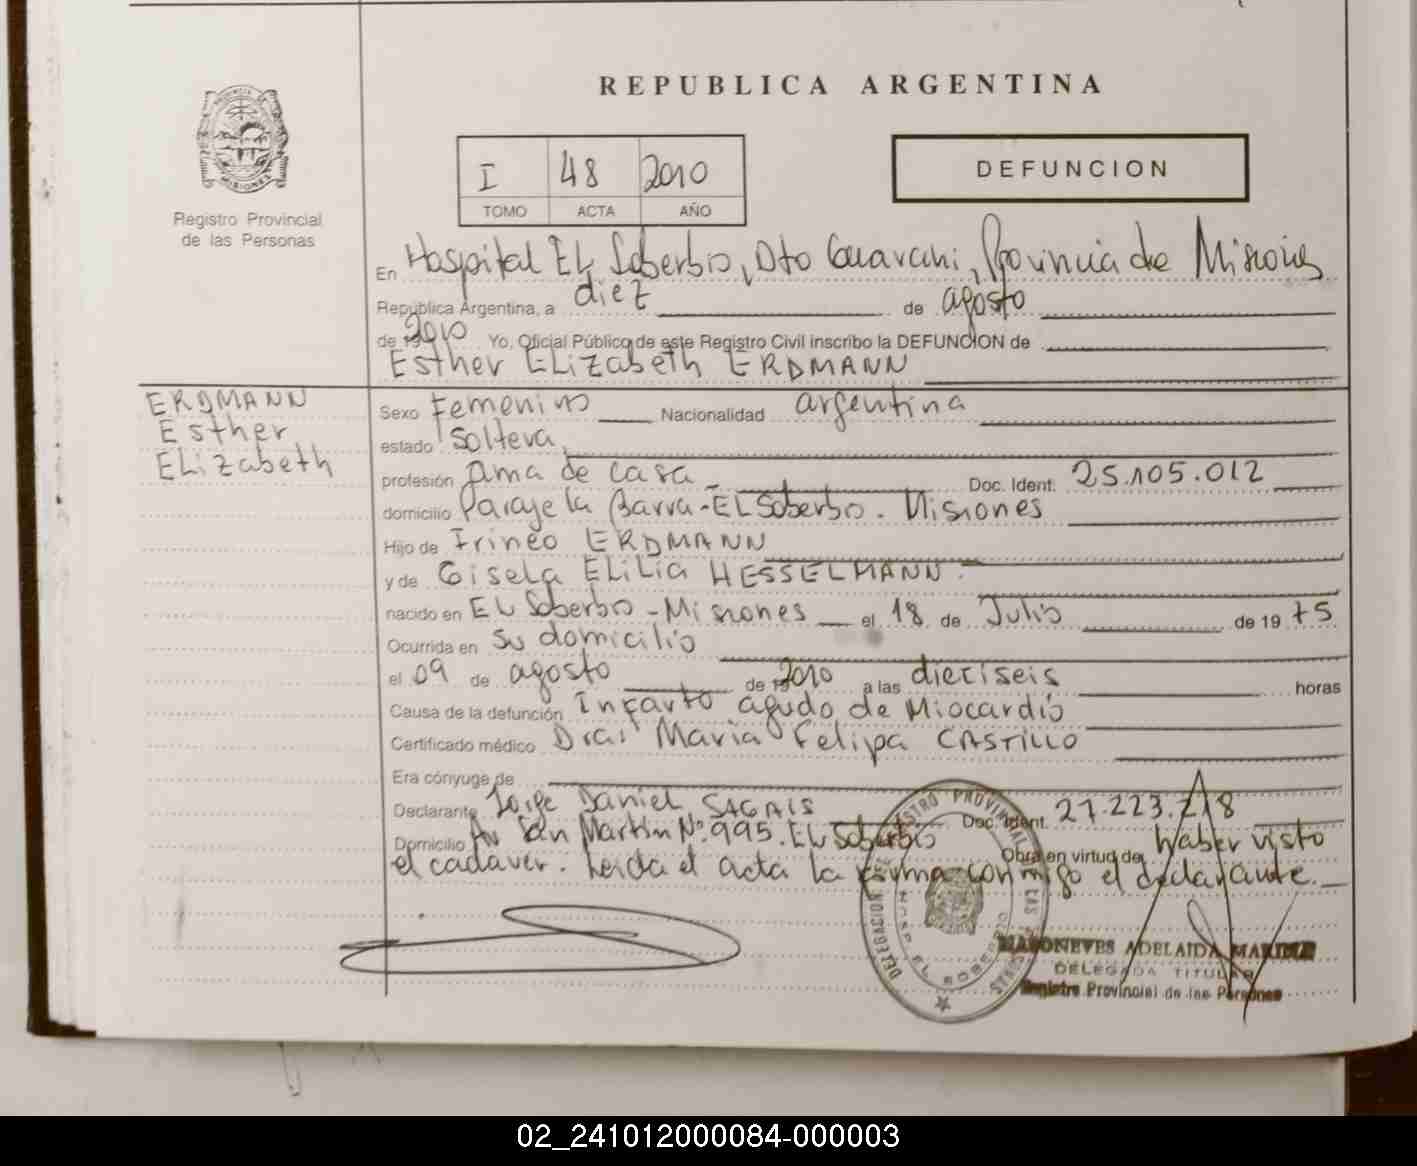 REPUBLICA ARGENTINA
PROVINCIA DE
MISIONES
Registro Provincial
de las Personas
I 48 2010
TOMO ACTA AÑO
DEFUNCION
En Hospital EL Soberbio, Dto Guarani, Provincia de Misiones
República Argentina, a diez de agosto
de 2010 Yo, Oficial Público de este Registro Civil inscribo la DEFUNCION de
Esther ELizabeth ERDMANN
ERDMANN
Esther
ELizabeth
Sexo Femenino Nacionalidad argentina
estado Soltera
profesión ama de casa Doc. Ident. 25.105.012
domicilio Paraje la Barra - EL Soberbio. Misiones
Hijo de Irineo ERDMANN
y de Gisela ELiLia HESSELMANN.
nacido en EL Soberbio - Misiones el 18 de Julio de 1975
Ocurrida en Su domicilio
el 09 de agosto de 2010 a las dieciseis horas
Causa de la defunción Infarto agudo de Miocardio
Certificado médico Dra. Maria Felipa CASTILLO
Era cónyuge de
Declarante Jorge Daniel Doc. Ident. 27.223.218
Domicilio Av San Martin Nº 995. EL Soberbio Obra en virtud de haber visto
el cadaver. Leida el acta la firma conmigo el declarante.
DELEGACION REGISTRO PROVINCIAL DE LAS PERSONAS
HOSP. EL SOBERBIO
ADELAIDA
DELEGADA TITULAR
Registro Provincial de las Personas
02_241012000084-000003